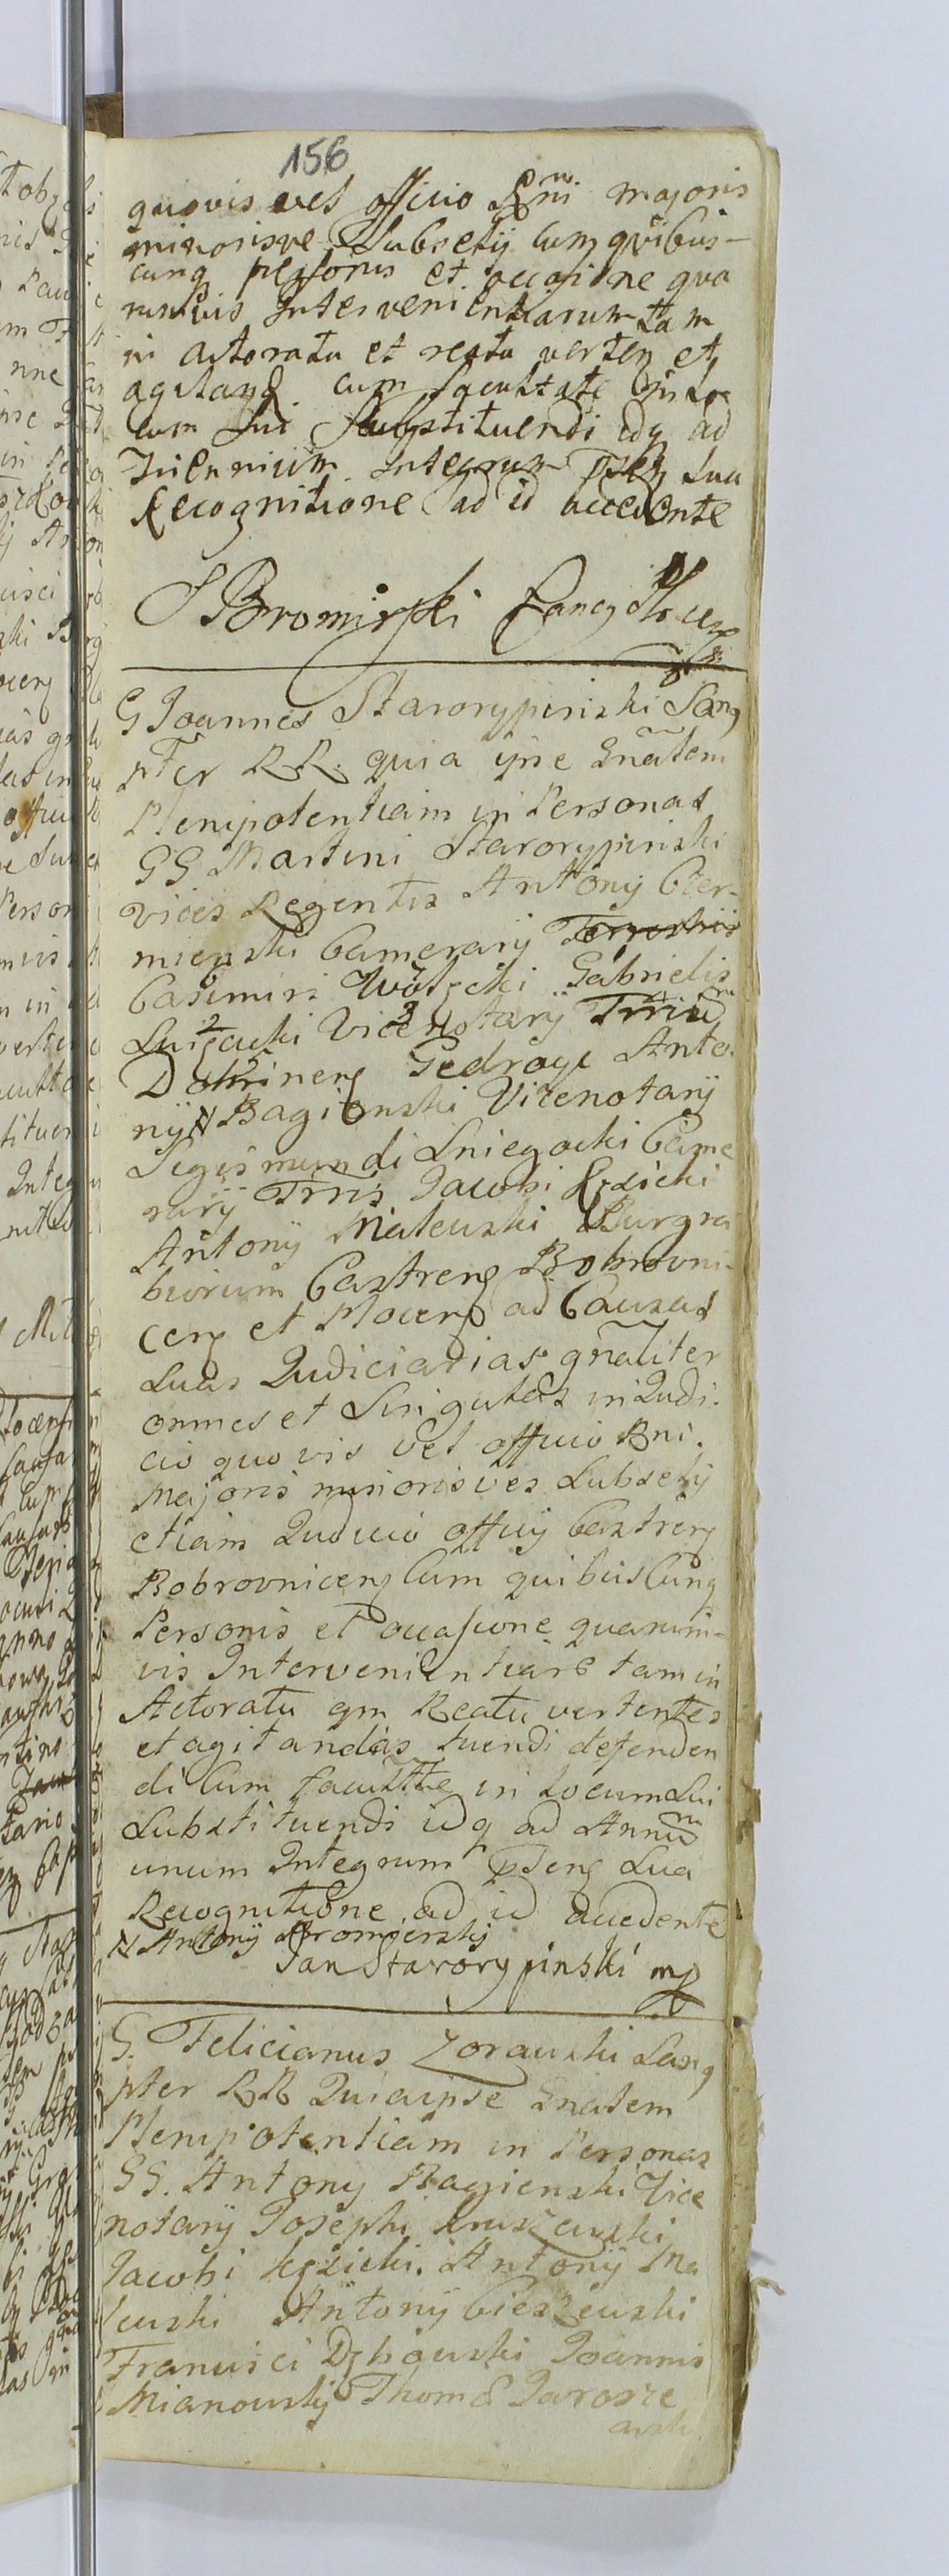 156
quovis vel officio Rni majoris
minorisve Subselij cum quibus-
cunq personis et occasione qua
rumvis Intervenientiarum tam
in actoratu et reatu verten et
agitand cum facultate in lo
cum sui substituendi idq ad
Trienniũm Integrum sua
Recognitione ad id accedente
S Bromirski
G Joannes Starorypinski San
pter RR. quia ipse Gnãtem
Plenipotentiam in Personas
GG Martini Starorypinski
vices Regentis Antony Cier-
mienski Camerarij Terrestris
Casimiri Wolski Gabrielis
Vicenotarij
Dobrinen Gedroyc Anto
nij N Bagienski Vicenotarij
Sigismundi Sniegocki Came
rarij Trris Jacobi Kęsicki
Antony Malewski Burgra
biorum Castren Bobrowni-
cen et Plocen ad Causas
suas Judiciarias gnãliter
omnes et singulas in Judi.
cio quovis vel officio Rni.
Majoris minorisves Subselij
etiam Judicio officij Castren
Bobrovnicen Cum quibuscunq
Personis et occasione quarum-
vis Intervenientiare tam in
Actoratu qm Reatu vertentes
et agitandas tuendi defenden
di Cum facultte in Locum Sui
Substituendi idq ad Annũ
unum Integrum pten Sua
Recognitione ad id accedente
N Antonij Bromierski
Jan Starorypinski mp
G. Felicianus Zorawski San
pter RR Quia ipse Gnatem
Plenipotentiam in Personas
GG. Antony Bagienski Vice
notarij Josephi Kruszewski
Jacobi Kęsicki. Antonij Ma
lewski Antonij Cieszewski
Francisci Dzbowski Joannis
Mianowskij Thomæ Jarosze
wski